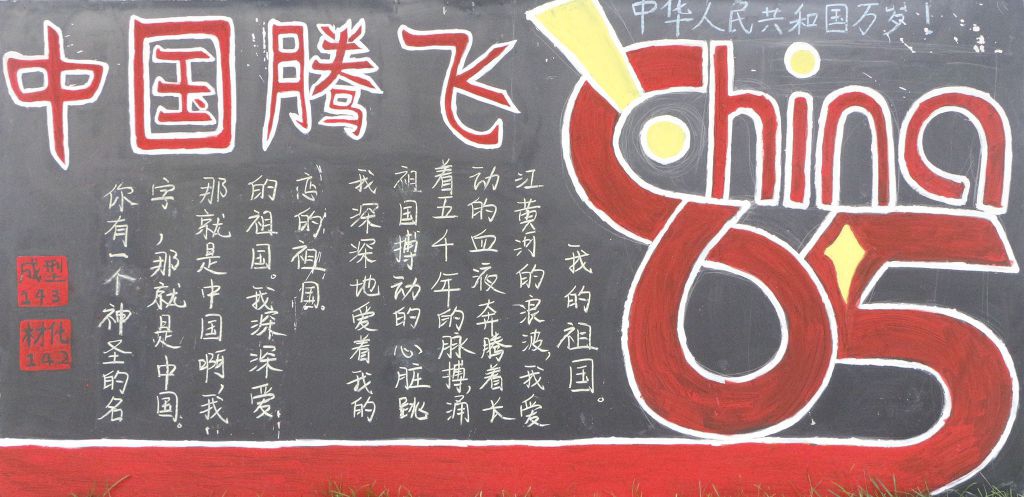 中国腾飞
中华人民共和国万岁！
China
65
你有一个神圣的名
字，那就是中国。
那就是中国啊，我
的祖国。我深深爱
恋的祖国。
我深深地爱着我的
祖国搏动的心脏跳
着五千年的脉搏，涌
动的血液奔腾着长
江黄河的浪波，我爱
我的祖国。
成型
143
材化
142